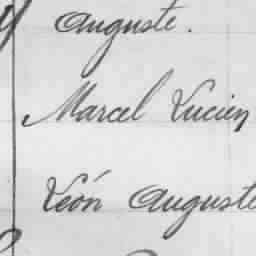 Auguste.
Marcel Lucien
Léon Auguste